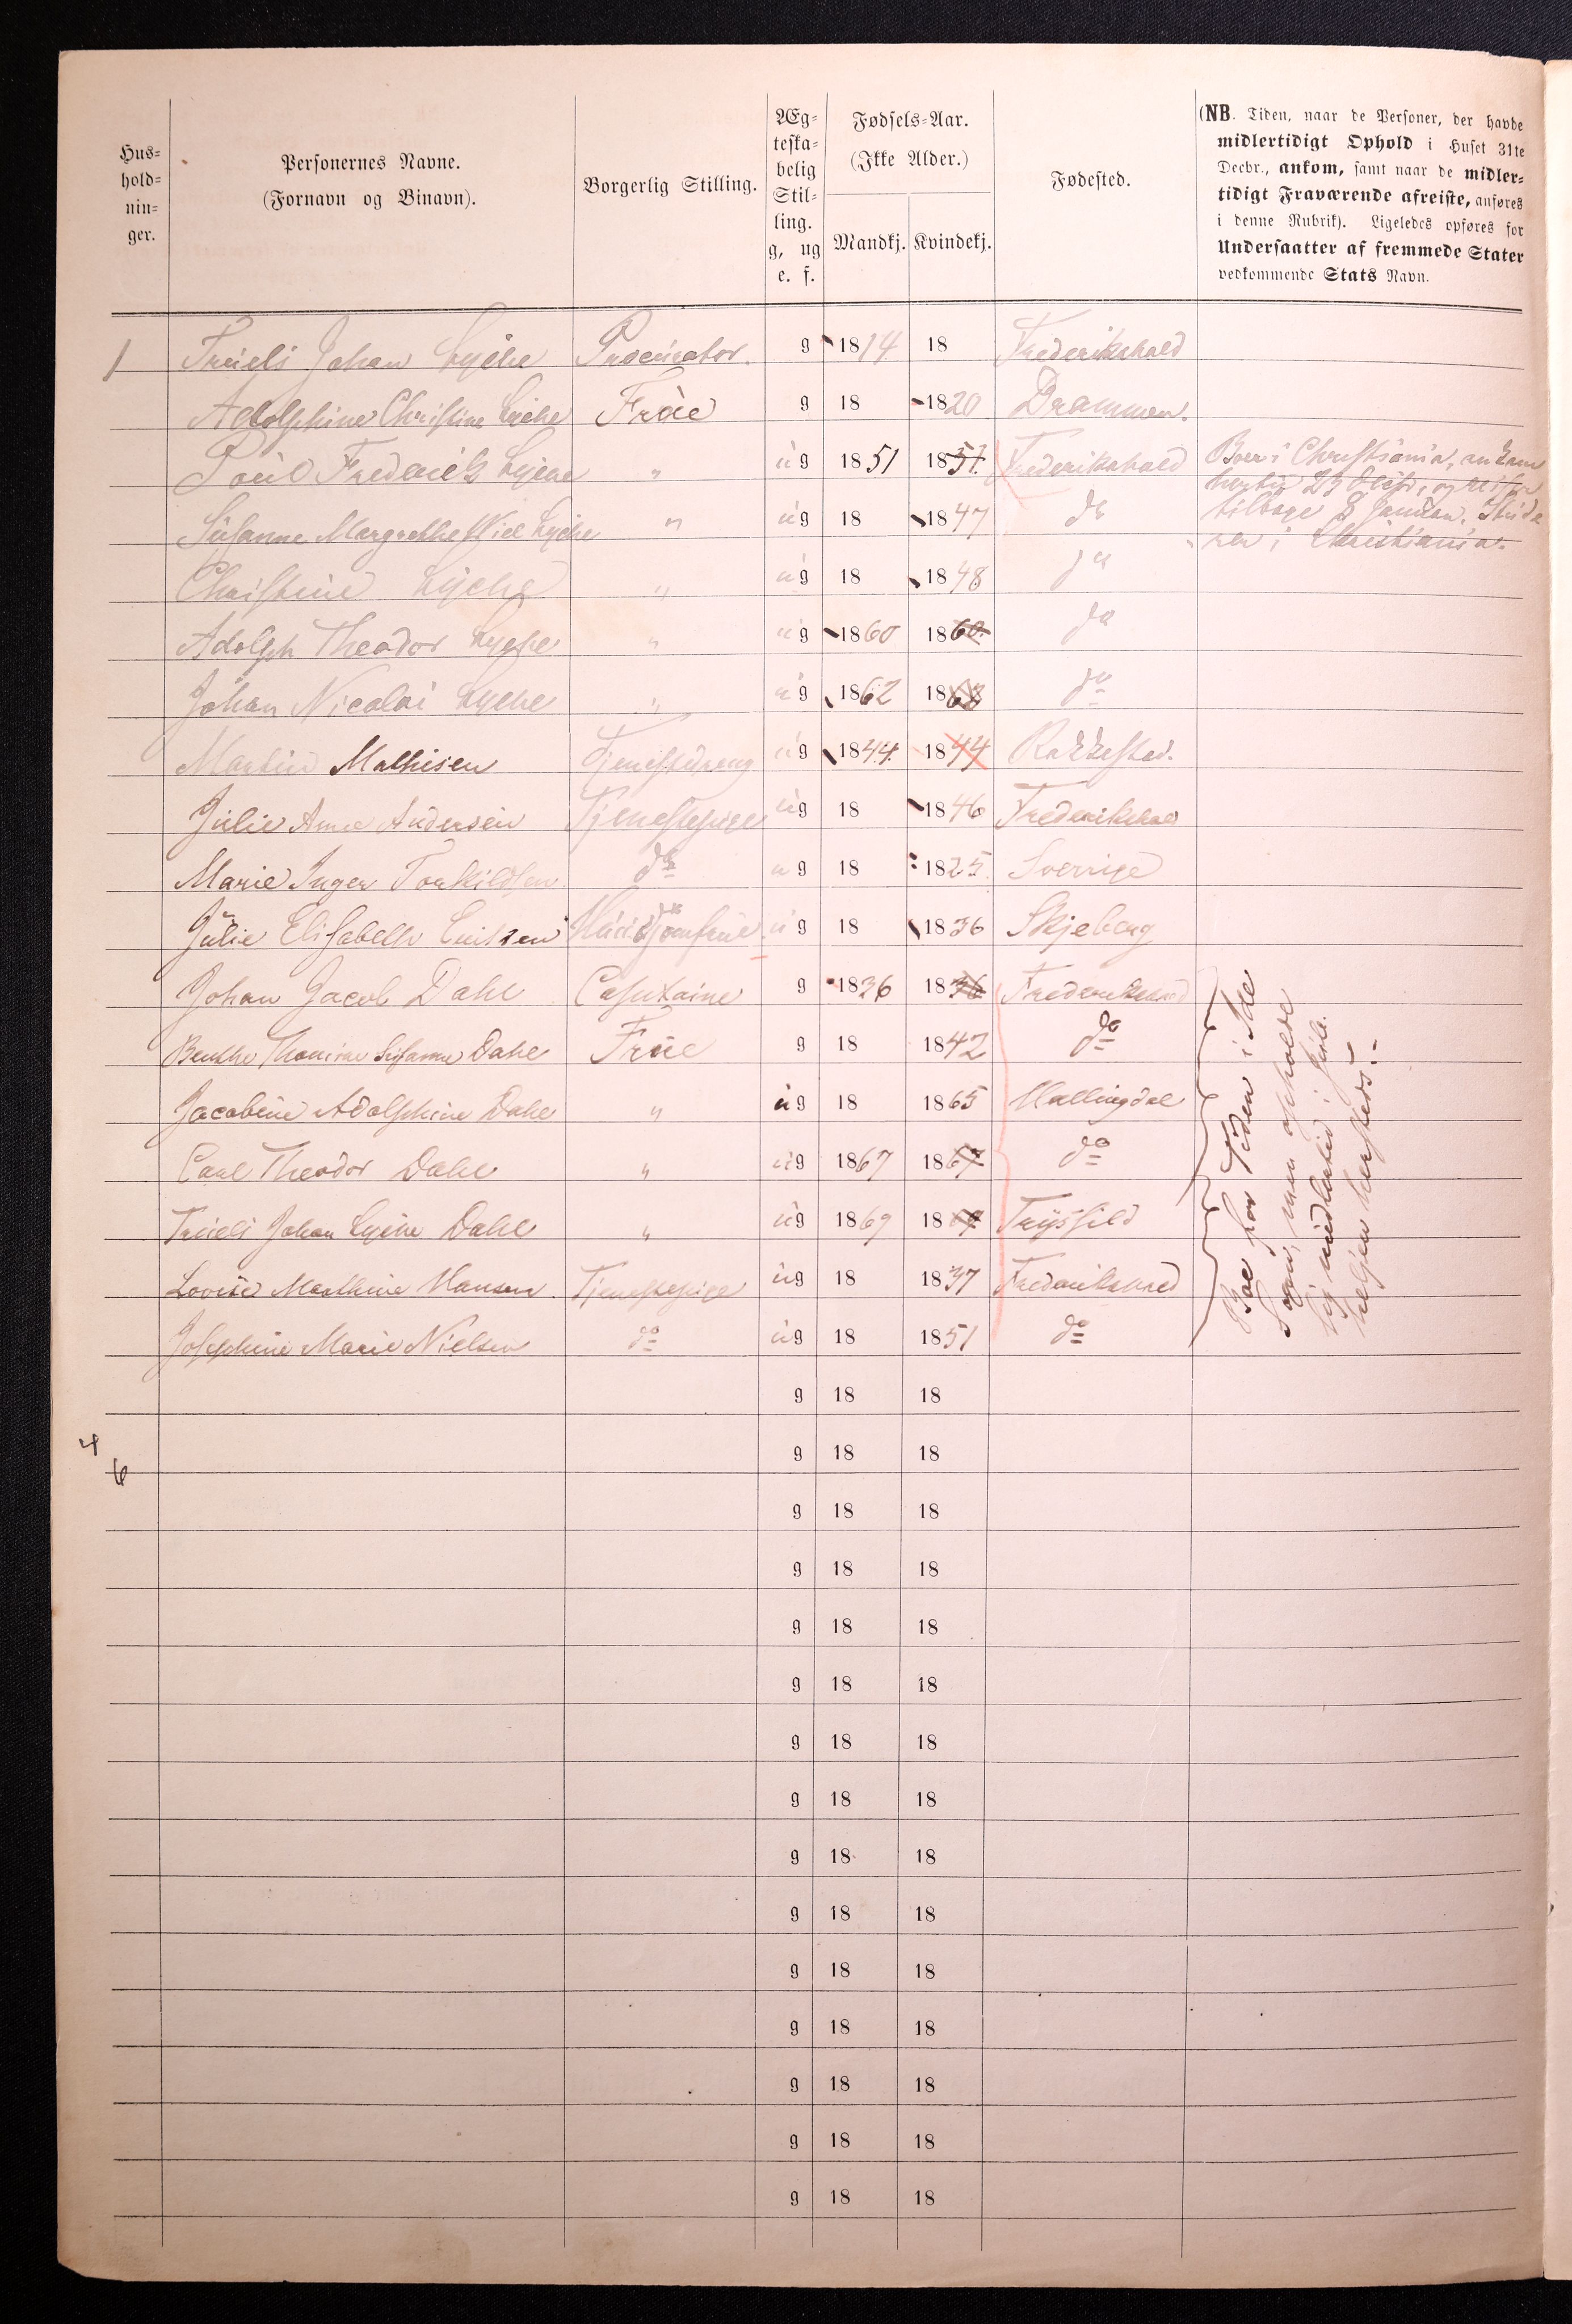 Hus-
hold-
nin-
ger.
Personernes Navne.
(Fornavn og Binavn).
Borgerlig Stilling.
Æg-
teska-
belig
Stil-
ling.
g, ug
e. f.
Fødsels-Aar.
(Ikke Alder.)
Mandkj. Kvindekj.
Fødested.
(NB. Tiden, naar de Personer, der havde
midlertidigt Ophold i Huset 31te
Decbr., ankom, samt naar de midler-
tidigt Fraværende afreiste, anføres
i denne Rubrik). Ligeledes opføres for
Undersaatter af fremmede Stater
vedkommende Stats Navn.
1 Truels Johan Lyche Procurator. g 1814 18 Frederikshald
Adolphine Christine Lyche Frue g 18 1820 Drammen.
Poul Frederik Lyche " ug 1851 1851. Frederikshald Boer i Christiania, ankom
hertil 23 Decbr, og reiser
Susanne Margrethe Wiel Lyche " ug 18 1847 do tilbage 8 Januar. Stude
rer i Christiania.
Christine Lyche " ug 18 1848 do
Adolph Theodor Lyche " ug 1860 1860 do
Johan Nicolai Lyche " ug 1862 1862 do
Martin Mathisen Tjenestdreng ug 1844. 1844 Rakkestad.
Julie Anne Andersen Tjenestepige ug 18 1846 Frederikshald
Marie Inger Torkildsen do ug 18 1825. Sverrige
Julie Elisabeth ug 18 1836 Skjeberg
Johan Jacob Dahl Capitaine g 1836 1836 Frederikshald
Benthe Thomine Susanne Dahl Frue g 18 1842 do
Jacobine Adolphine Dahl " ug 18 1865 Hallingdal
Carl Theodor Dahl " ug 1867 1867 do
Truels Johan Lyche Dahl " ug 1869 1869 Trysild
Lovise Mathine Hansen Tjenestepige ug 18 1837 Frederikshald
Josephine Marie Nielsen do ug 18 1851 do
Boe for Tiden i Ide
Sogn, men opholdt
sig midlertid i Julen
hersteds.
g 18 18
4
g 18 18
6
g 18 18
g 18 18
g 18 18
g 18 18
g 18 18
g 18 18
g 18 18
g 18 18
g 18 18
g 18 18
g 18 18
g 18 18
g 18 18